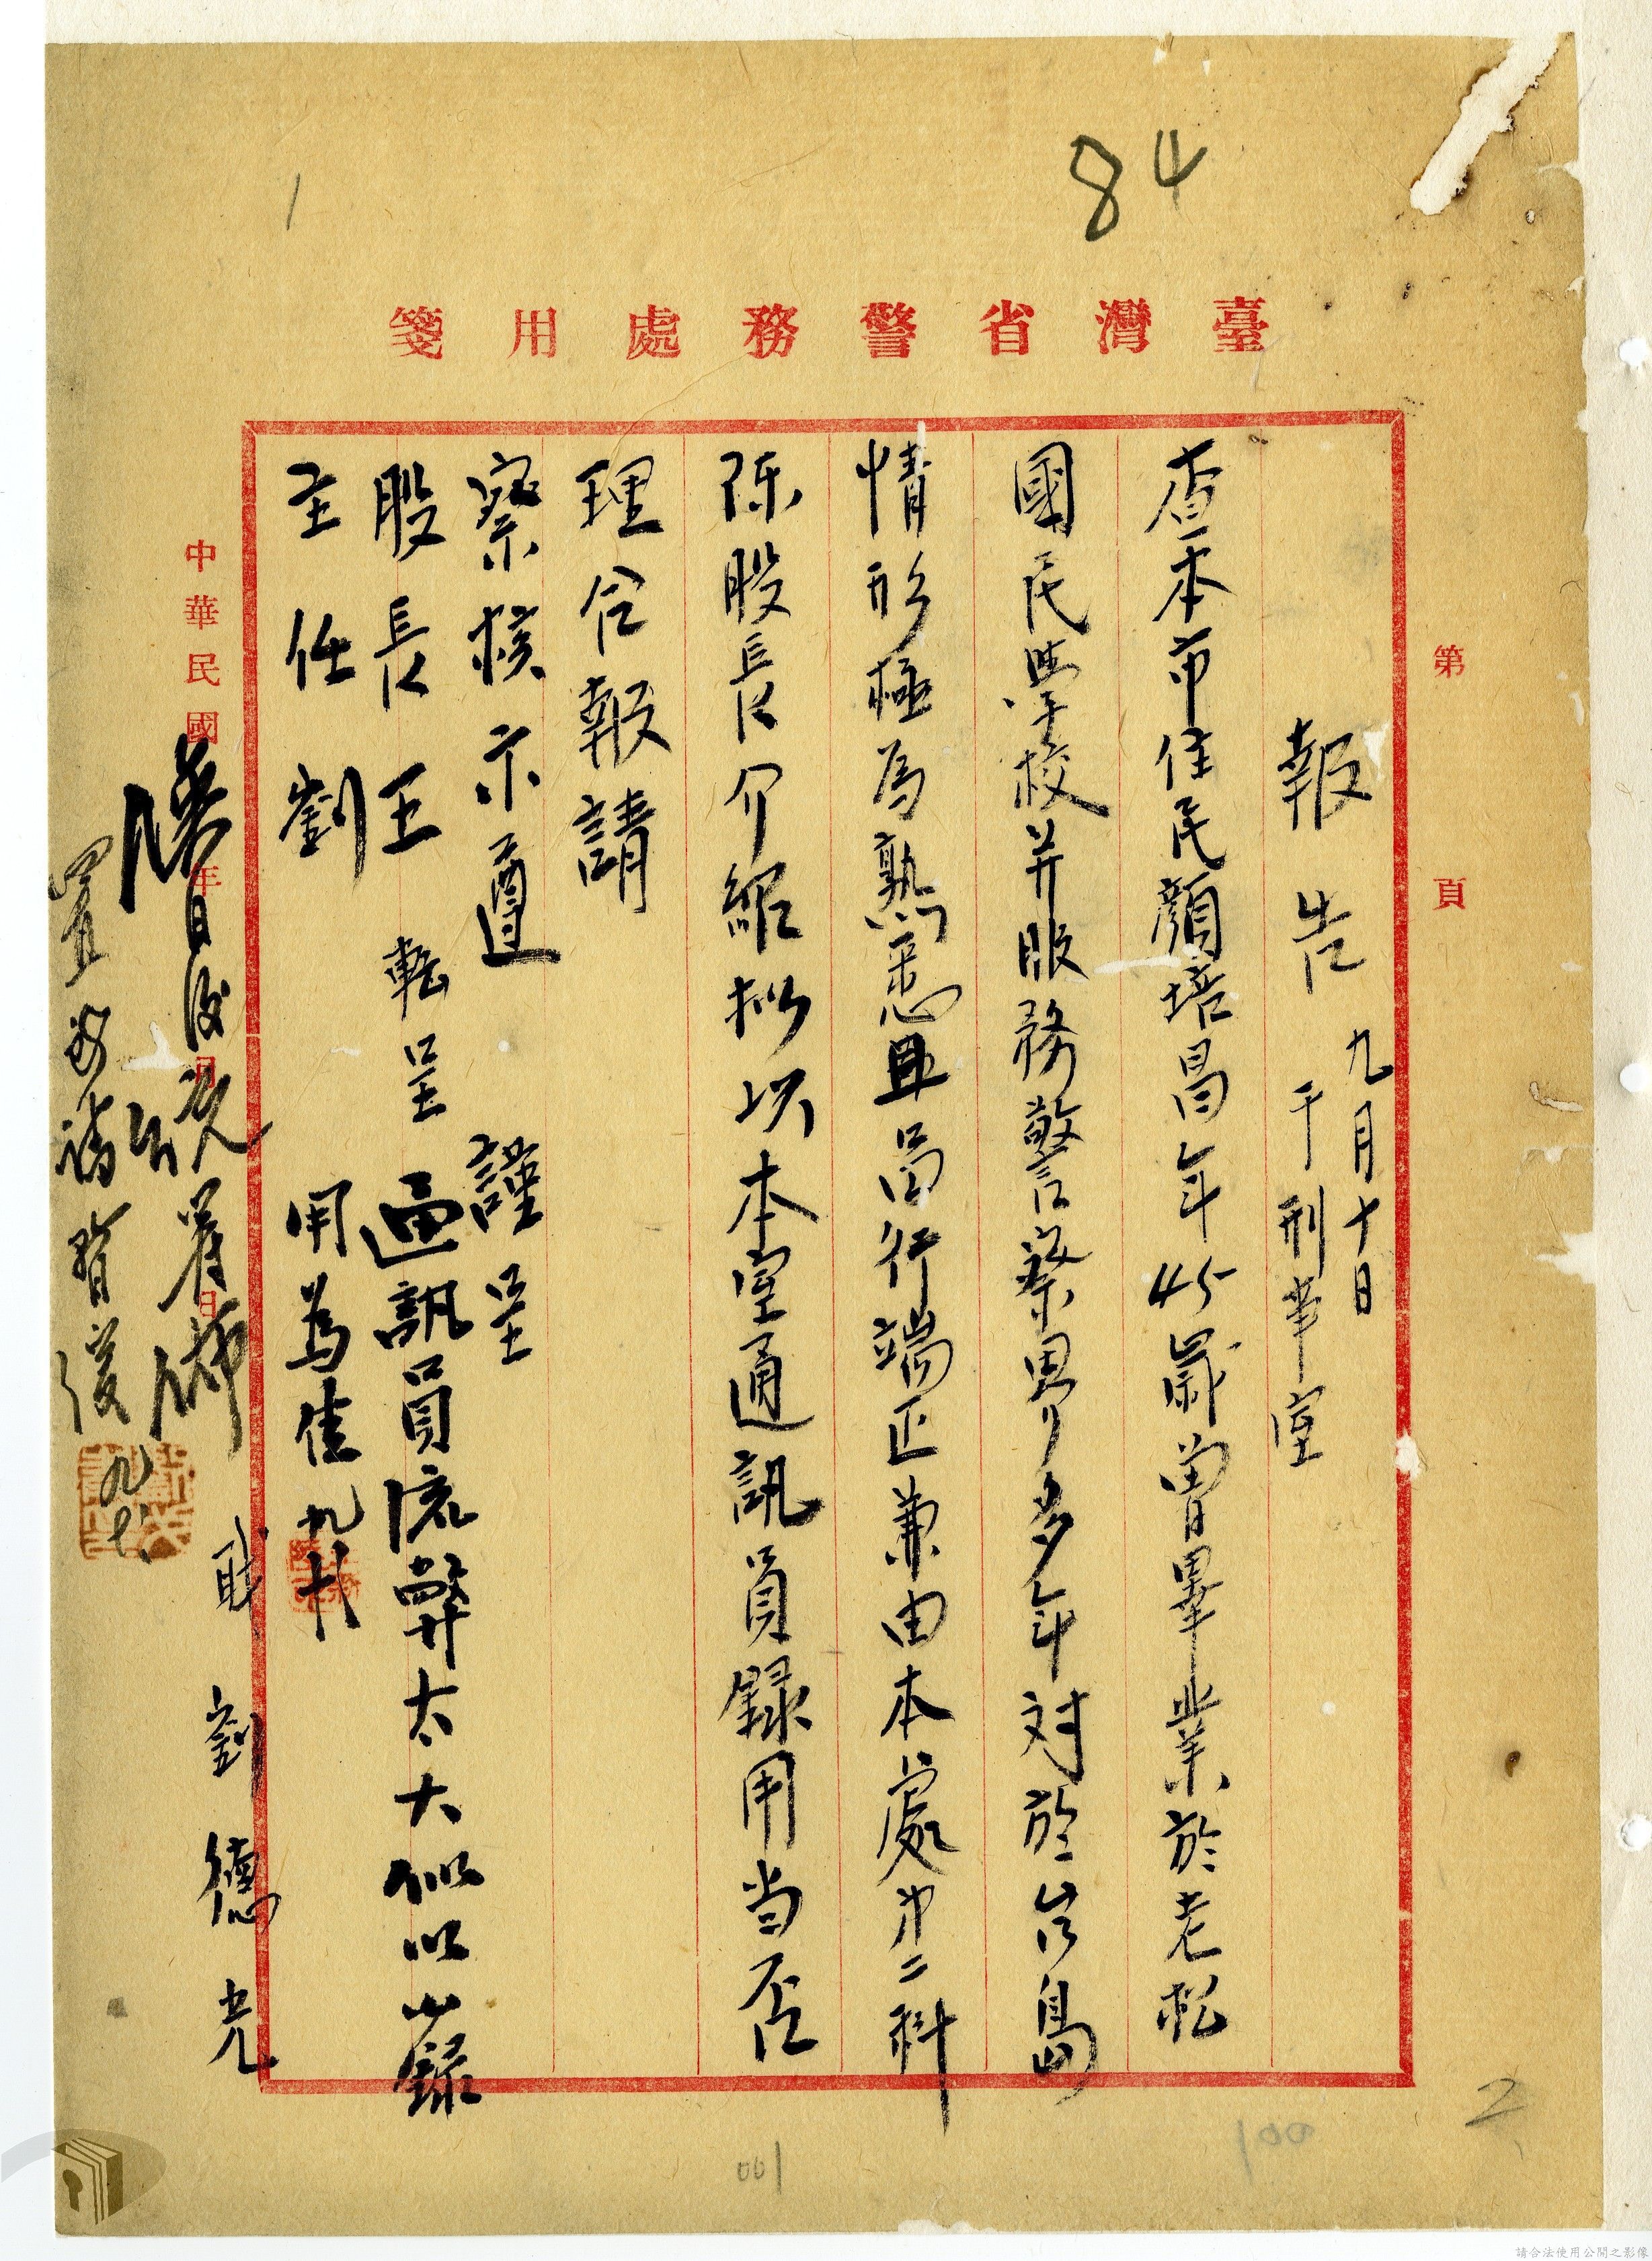 84
臺灣省警務處用箋
第 頁
報告 九月十日
于刑事室
查本市住民顏培昌年45歲曾畢業於老松
國民學校并服務警察界多年対於台島
情形極為熟悉且品行端正兼由本處第二科
陈股長介紹拟以本室通訊員録用当否
理合報請
察核示遵 謹呈
股長王 転呈
主任劉
通訊員流弊太大似以少錄
用為佳 九、十
職 劉德光
中華民國 年 月 日
暫緩
2
100
001
請合法使用公開之影像